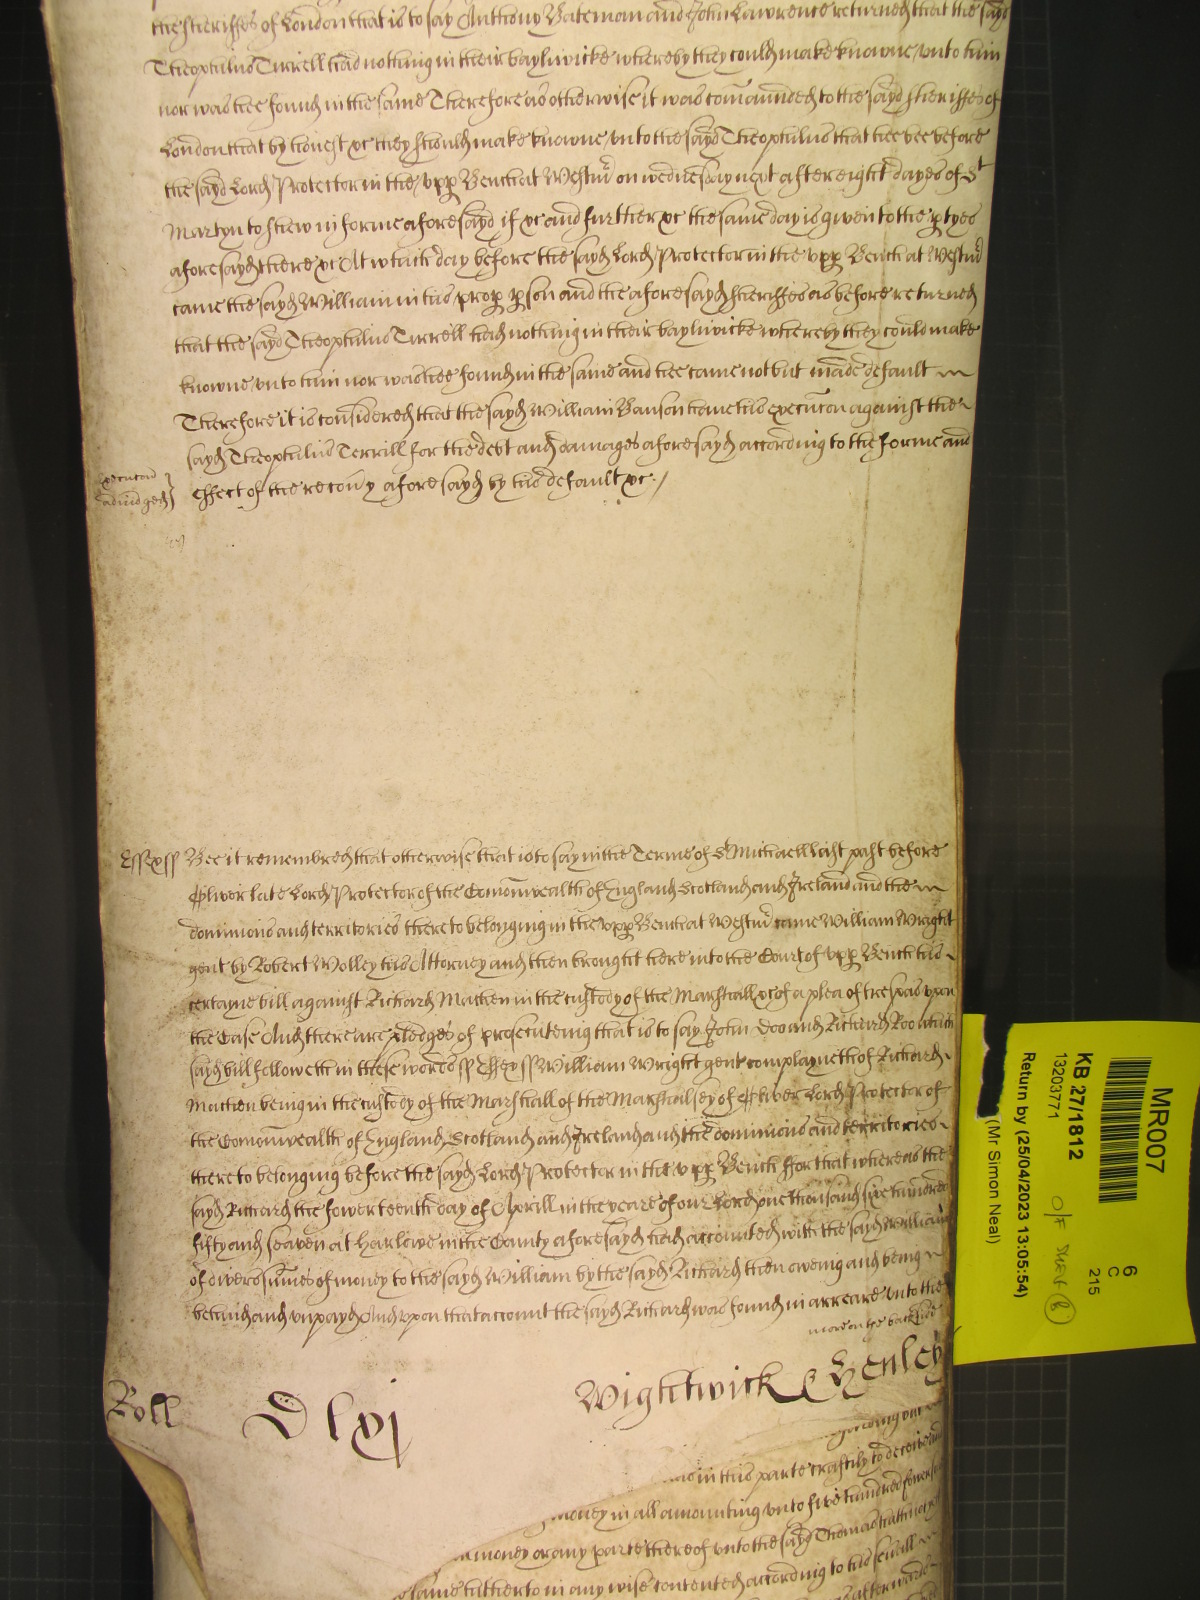 the sheriffes of London that is to say Anthony Bateman and John Lawrence returned that the sayd
Theophilus Tirrell had nothing in their bayliwicke whereby they could make knowne unto him
nor was hee found in the same Therefore as otherwise it was comaunded to the sayd sheriffes of
London that by honest &c they should make knowne unto the sayd Theophilus that hee bee before
the sayd Lord Protector in the upp Bench at Westmr on wednesday next after eight dayes of St
Martyn to shew in forme aforesayd if &c and further &c the same day is given to the ptyes
aforesayd there &c At which day before the sayd Lord Protector in the upp Bench at Westmr
came the sayd William in his prop pson and the aforesayd sheriffes as before returned
that the sayd Theophilus Tirrell had nothing in their bayliwicke whereby they could make
knowne unto him nor was hee found in the same and hee came not but made default
Therefore it is considered that the sayd William Banson have his execucon against the
sayd Theophilus Terrill for the debt and damages aforesayd according to the forme and
execucon
adiudged
effect of the recouy aforesayd by his default &c./
Essex ss Bee it remembred that otherwise that is to say in the Terme of St Michaell last past before
Oliver late Lord Protector of the Comonwealth of England Scotland and Ireland and the
dominions and territories thereto belonging in the upp Bench at Westmr came William Wright
gent by Robert Wolley his Attorney and then brought here into the Court of upp Bench his
certayne bill against Richard Matthen in the custody of the Marshall &c of a plea of trespas upon
the Case And there are pledges of prosecuteing that is to say John Doo and Richard Roo which
sayd bill followeth in these words ss Essex ss William Wright gent complayneth of Richard
Matthen being in the custody of the Marshall of the Marshalsey of Oliver Lord Protector of
the Comonwealth of England Scotland and Ireland and the dominions and territories
thereto belonging before the sayd Lord Protector in the upp Bench ffor that whereas the
sayd Richard the fowerteenth day of Aprill in the yeare of our Lord one thousand six hundred
fifty and seaven at Harlowe in the County aforesayd had accounted with the sayd William
of divers sumes of money to the sayd William by the sayd Richard then oweing and being
behind and unpayd And upon that account the sayd Richard was found in arreare unto the
more on the backside
Roll Dlxj Wightwick & Henley
in this parte craftily to deceive
money in all amounting unto five hundred
money or any parte thereof unto the sayd Thomas
same hitherto in any wise contented according to his
afterwards
MR007
6
C
215
KB 27/1812
13203771
Return by (25/04/2023 13:05:54)
(Mr Simon Neal)